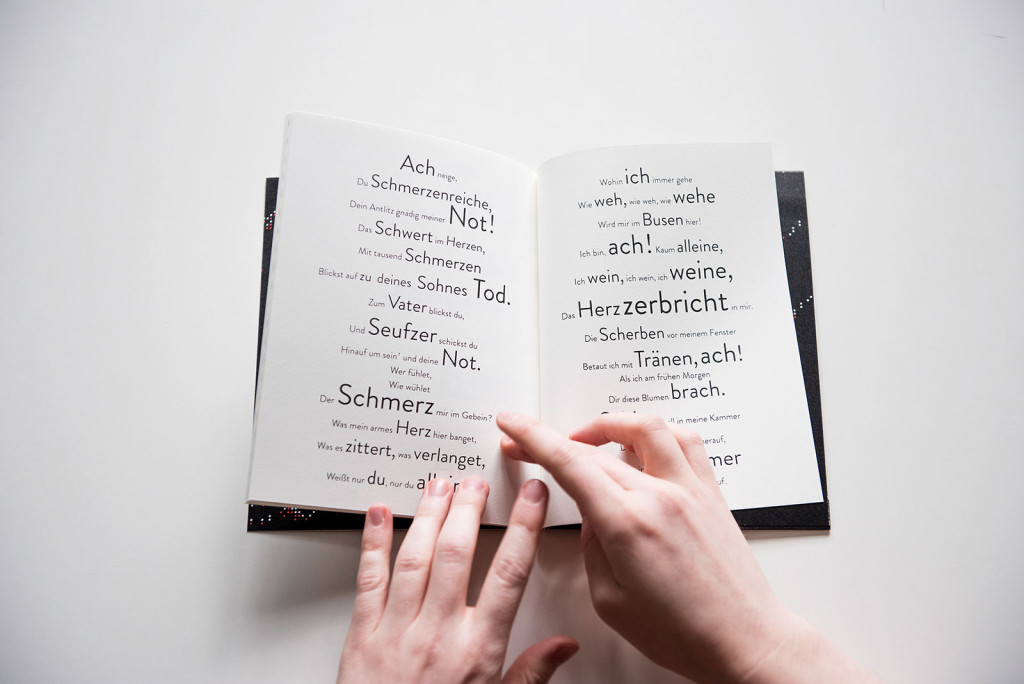 Ach neige,
Du Schmerzenreiche,
Dein Antlitz gnädig meiner Not!
Das Schwert im Herzen,
Mit tausend Schmerzen
Blickst auf zu deines Sohnes Tod.
Zum Vater blickst du,
Und Seufzer schickst du
Hinauf um sein' und deine Not.
Wer fühlet,
Wie wühlet
Der Schmerz mir im Gebein?
Was mein armes Herz hier banget,
Was es zittert, was verlanget,
Weißt nur du, nur du
Wohin ich immer gehe
Wie weh, wie weh, wie wehe
Wird mir im Busen hier!
Ich bin, ach! Kaum alleine,
Ich wein, ich wein, ich weine,
Das Herz zerbricht in mir.
Die Scherben vor meinem Fenster
Betaut ich mit Tränen, ach!
Als ich am frühen Morgen
Dir diese Blumen brach.
in meine Kammer